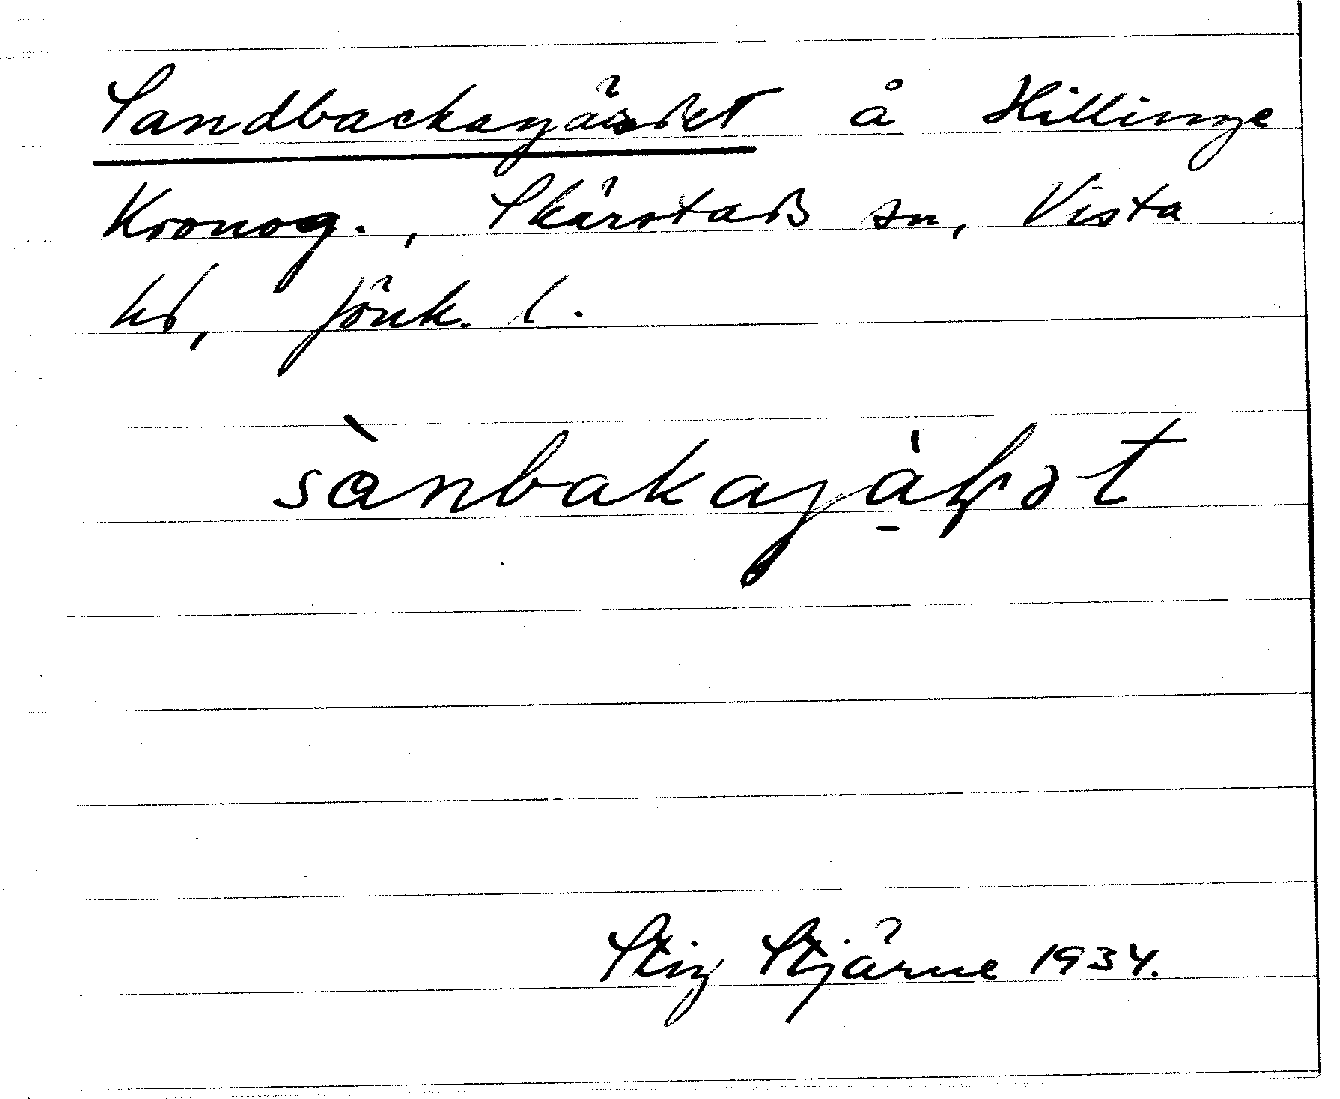 Sandbackagärdet å Hillinge
Kronog., Skärstads sn, Vista
hd, Jönk. l.
sànbakajà̱ɭət
Stig Stjärne 1934.